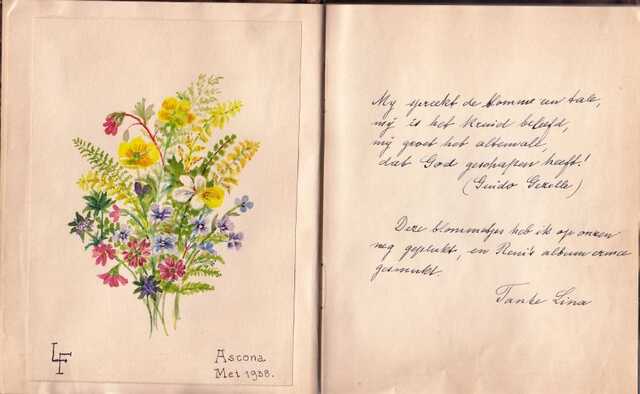 LF
Ascona
Mei 1938.
My spreekt de blomme een tale,
mij is het kruid beleefd,
mij groet het altemale,
dat God geschapen heeft!
(Guido Gezelle)
Deze blommetjes heb ik op onzen
weg geplukt, en René's album ermee
gesmukt.
Tante Lina